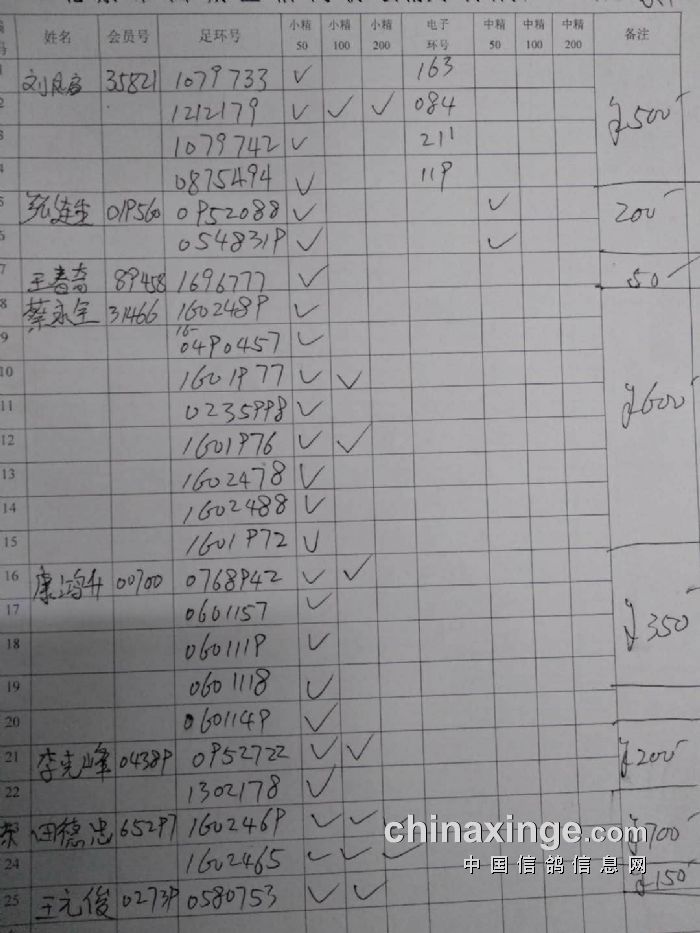 姓名 会员号 足环号 小精50 小精100 小精200 电子环号 中精50 中精100 中精200 备注
35821 1079733 ✓ 163
1212179 ✓ ✓ ✓ 084 500
1079742 ✓ 211
0875494 ✓ 119
019560 0952088 ✓ ✓ 200
0548319 ✓ ✓
7 王春奇 89458 1696777 ✓ 50
8 蔡永宝 31466 1602489 ✓
9 16- 0490457 ✓
10 1601977 ✓ ✓
11 0235998 ✓ 600
12 1601976 ✓ ✓
13 1602478 ✓
14 1602488 ✓
15 1601972 ✓
16 康鸿升 00700 0768942 ✓ ✓
17 0601157 ✓ 350
18 0601119 ✓
19 0601118 ✓
20 0601149 ✓
21 李克峰 04389 0952722 ✓ ✓ 200
22 1302178 ✓
田德忠 65297 1602469 ✓ ✓ 700
24 1602465 ✓ ✓ ✓ 150
25 王元俊 02739 0580753 ✓ ✓
chinaxinge.com
中国信鸽信息网